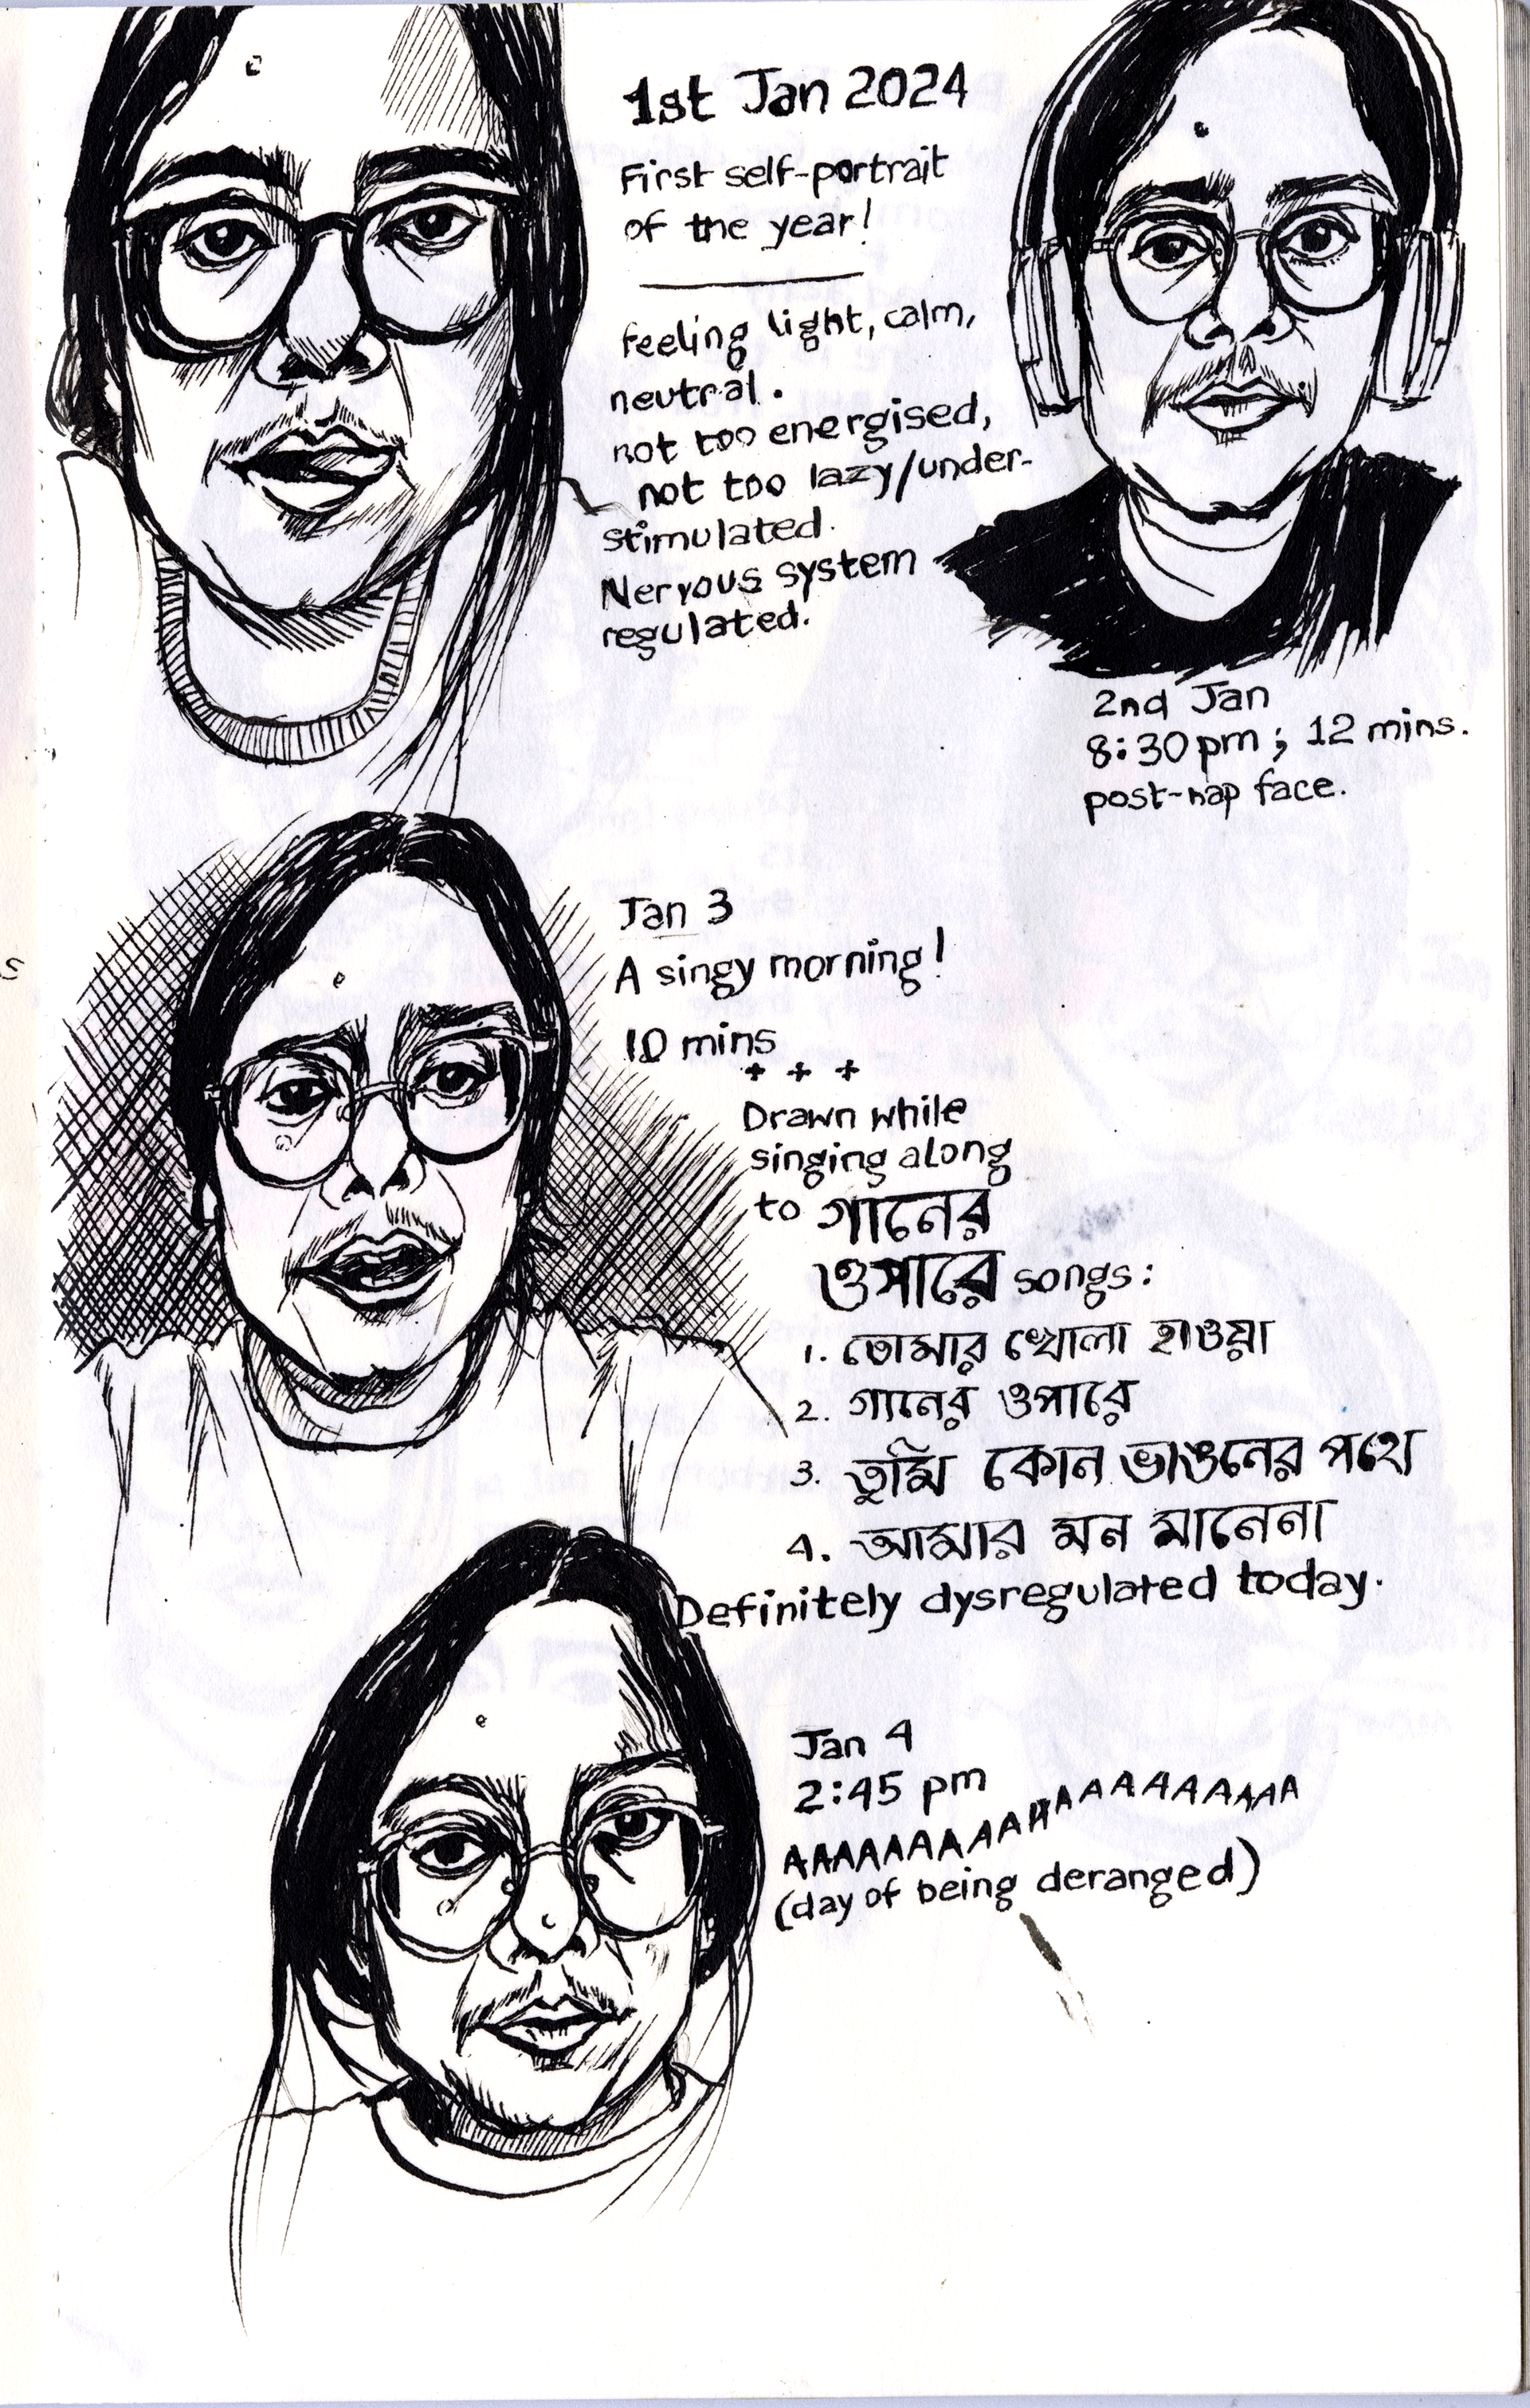 1st Jan 2024
First self-portrait
of the year!
feeling light, calm,
neutral.
not too energised,
not too lazy/under-
stimulated.
Nervous system
regulated.
2nd Jan
8:30pm; 12 mins.
post-nap face.
Jan 3
A singy morning!
10 mins
+ + +
Drawn while
singing along
to গানের
ওপারে songs:
1. তোমার খোলা হাওয়া
2. গানের ওপারে
3. তুমি কোন ভাঙনের পথে
4. আমার মন মানেনা
Definitely dysregulated today.
Jan 4
2:45 pm
AAAAAAAAAAAAAAAAAAAAA
(day of being deranged)